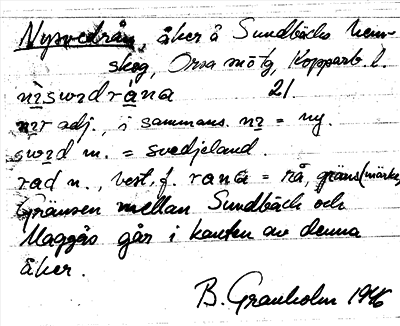 Nysvedrån, åker å Sundbäcks hem-
skog, Orsa sn o tg, Kopparb. l.
nìswədràna 21.
nìr adj., i sammans. nì = ny.
swəd m. = svedjeland.
rad n., best. f. ranà = rå, gräns(märke)
Gränsen mellan Sundbäck och
Maggås går i kanten av denna
åker.
B. Granholm 1946